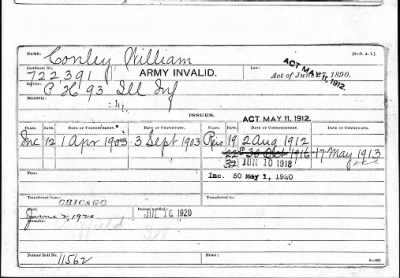 NAME: Conley, William [3-P. A. I.]
Certificate No. 722,391 ARMY INVALID. Law: Act of June 27, 1890. ACT MAY 11, 1912.
C H 93 Ill Inf
Disability:
ISSUES.
ACT MAY 11, 1912.
CLASS. RATE. DATE OF COMMENCEMENT. DATE OF CERTIFICATE. CLASS. RATE. DATE OF COMMENCEMENT. DATE OF CERTIFICATE.
Inc 12 1 Apr 1903 3 Sept 1903 Reis 19 2 Aug 1912
30 Oct 1916 17 May 1913
JUN 10 1918
Inc. 50 May 1, 1920
From
Transferred from CHICAGO
June 2, 1920 JUL 16 1920
Former Roll No. 11562